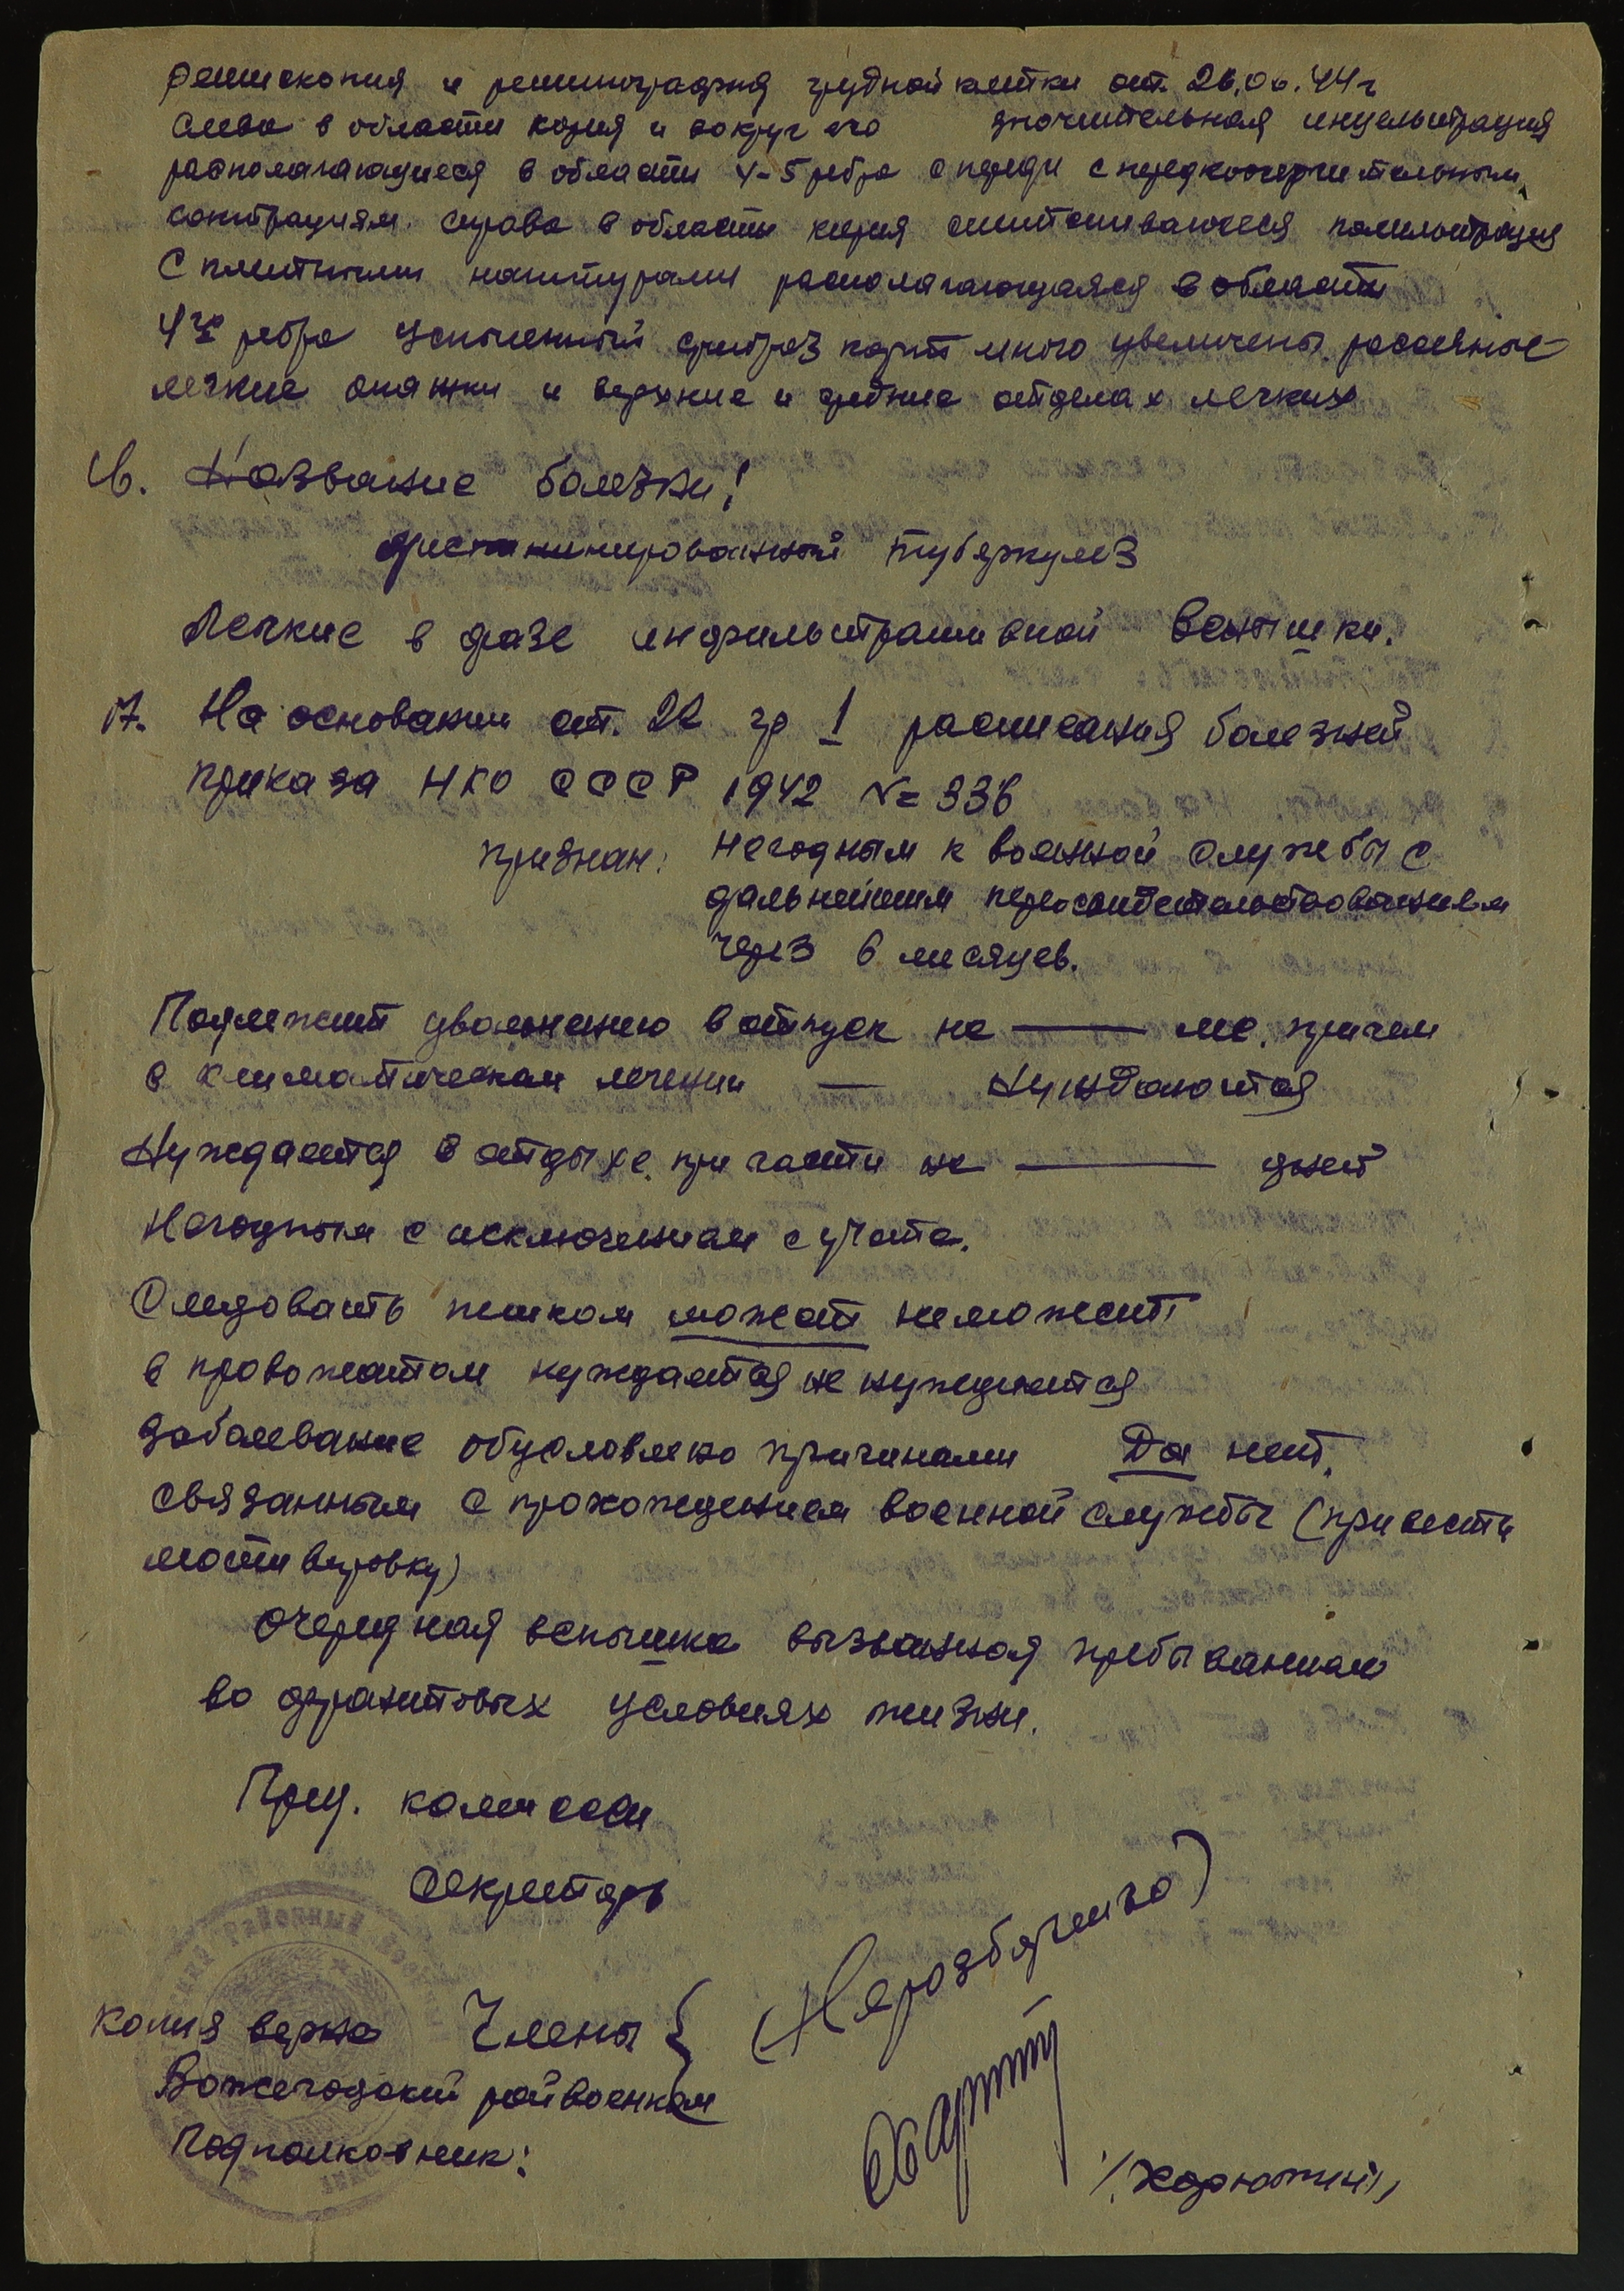 и рентгенография грудной клетки от. 26.06.44 г
Слева в области корня и вокруг его значительная инфильтрация
располагающиеся в области 4-5 ребра спереди с
справа в области корня
С плотными располагающаяся в области
4го ребра увеличены. рассеяные
легкие и верхние и средние отделах легких
16. Название болезни:
туберкулез
Легкие в фазе инфильтративной вспышки.
17. На основании ст. 22 гр I расписания болезней
приказа НКО СССР 1942 № 336
признан: негодным к военной службы с
дальнейшим переосвидетельствованием
через 6 месяцев.
Подлежит увольнению в отпуск на — мс. причем
в климатическом лечении — нуждаются
Нуждается в отдыхе при части на — дней
Негодным с исключением с учета.
Следовать пешком можат неможет
в провожатом нуждается не нуждается
Заболевание обусловлено причинами Да нет.
связанным с прохождением военной службы (привести
мотивировку)
очередная вспышка вызванная пребыванием
во фронтовых условиях жизни.
Пред. комисси
Секретарь
(Неразборчиво)
копия верна Члены {
Вожегодский райвоенком
Подполковник:
/Харюткин/